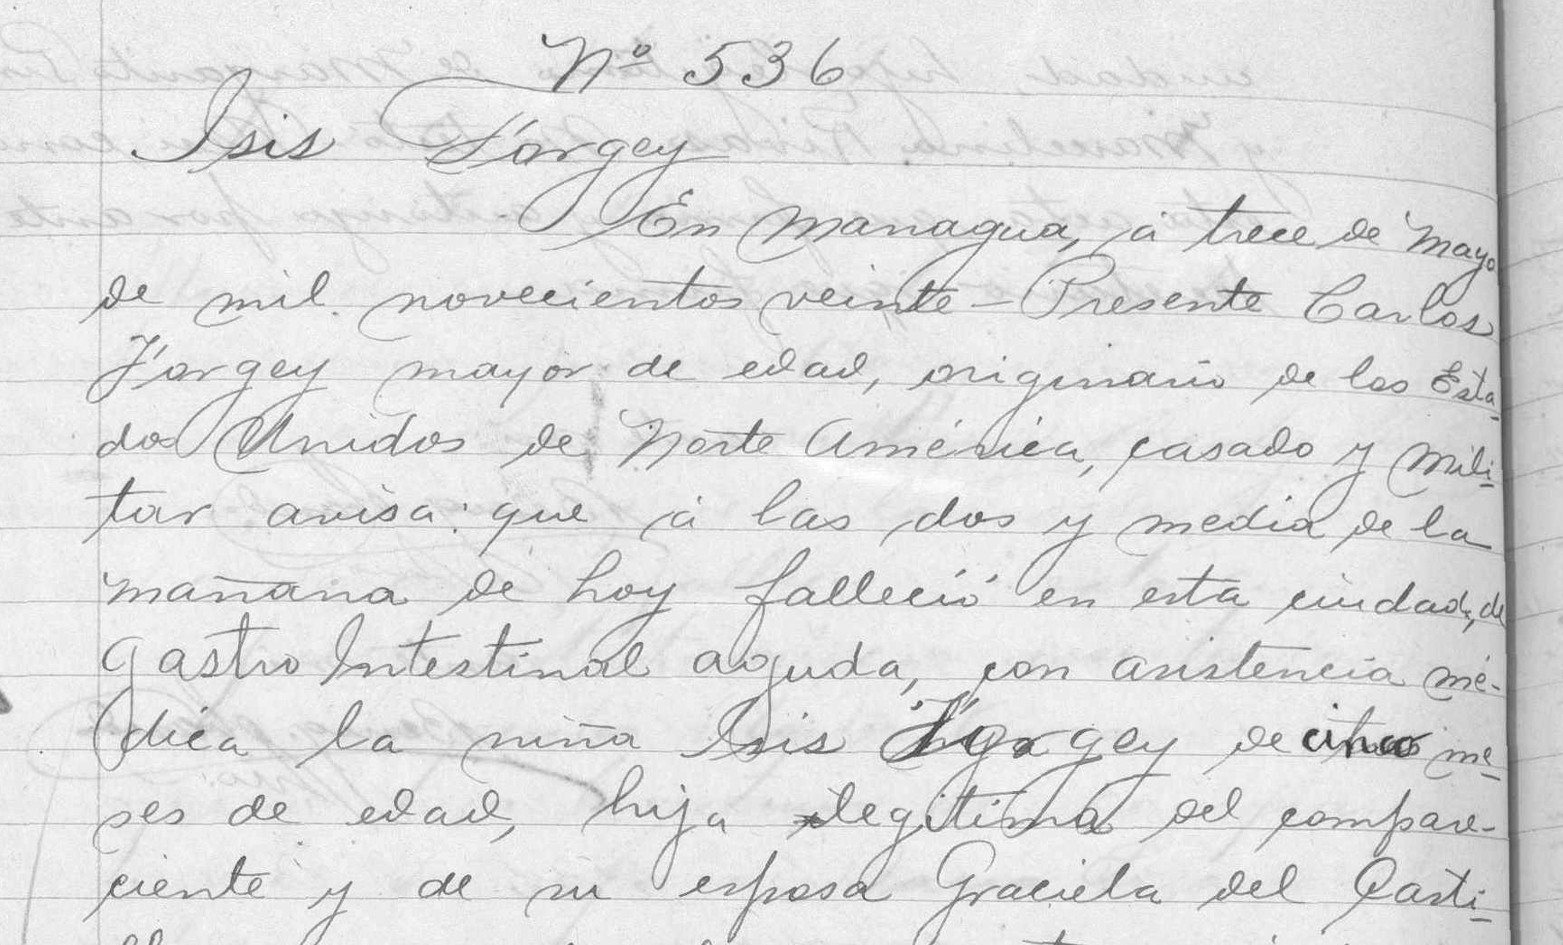 Nº 536
Isis Forgey
En Managua, á trece de Mayo
de mil novecientos veinte - Presente Carlos
Forgey mayor de edad, originario de los Esta-
dos Unidos de Norte América, casado y mili-
tar avisa: que á las dos y media de la
mañana de hoy falleció en esta ciudad, de
Gastro Intestinal aguda, con asistencia mé-
dica la niña Isis Forgey de cinco me-
ses de edad, hija legitima del compare-
ciente y de su esposa Graciela del Casti-